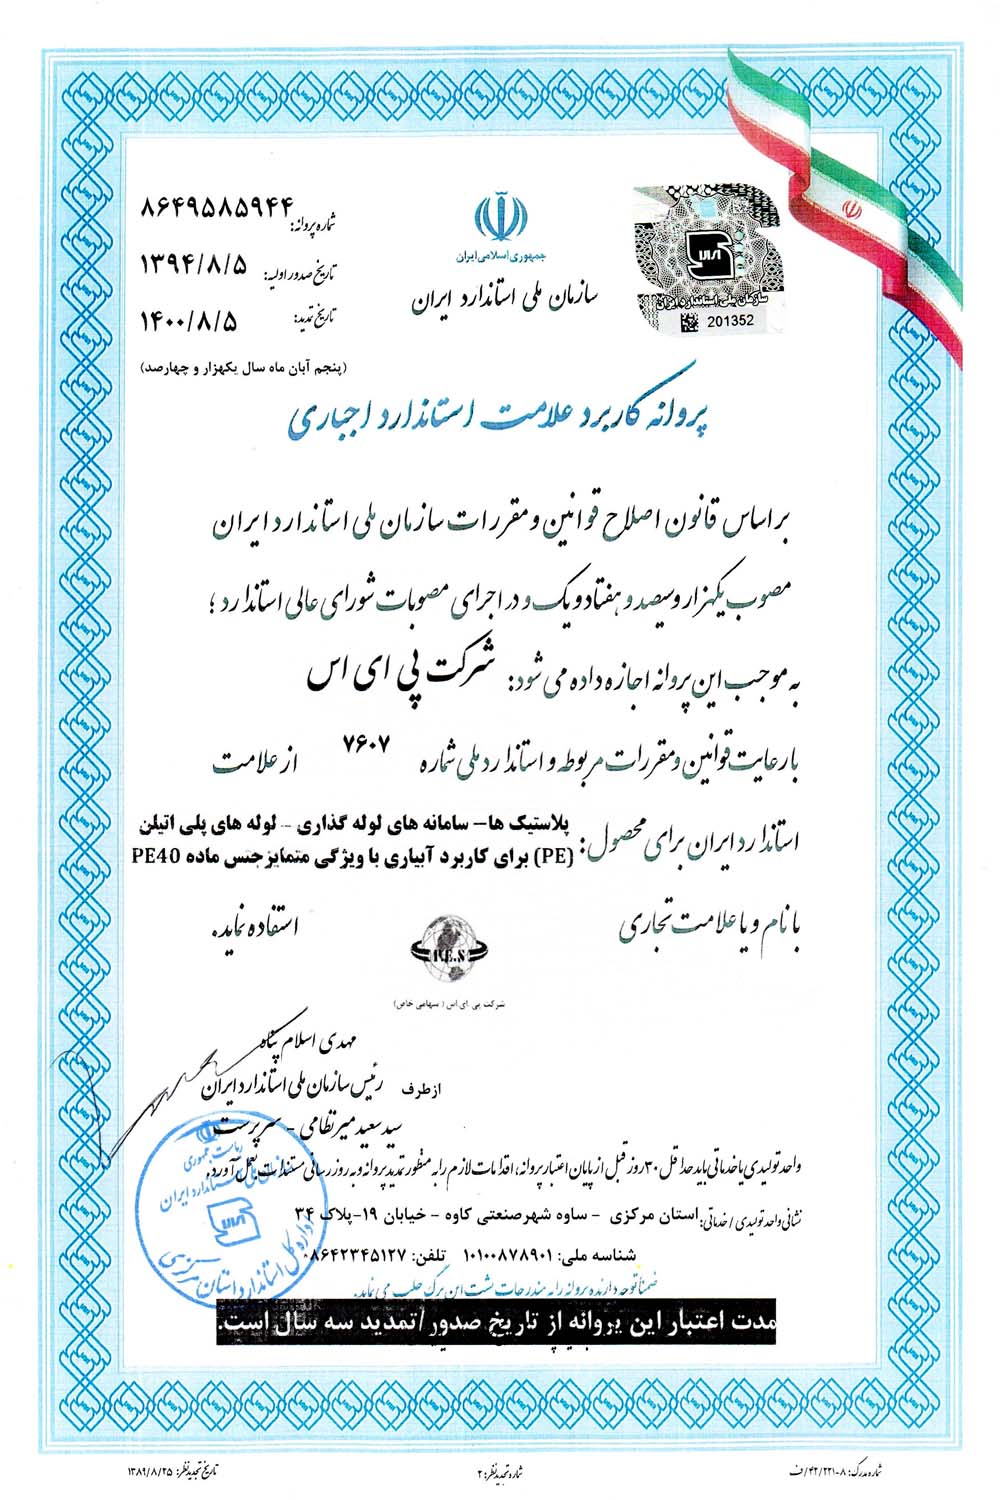 جمهوری اسلامی ایران
سازمان ملی استاندارد ایران
سازمان ملی استاندارد ایران
201352
شماره پروانه: ۸۶۴۹۵۸۵۹۴۴
تاریخ صدور اولیه: ۱۳۹۴/۸/۵
تاریخ تمدید: ۱۴۰۰/۸/۵
(پنجم آبان ماه سال یکهزار و چهارصد)
پروانه کاربرد علامت استاندارد اجباری
بر اساس قانون اصلاح قوانین و مقررات سازمان ملی استاندارد ایران
مصوب یکهزار و سیصد و هفتاد و یک و در اجرای مصوبات شورای عالی استاندارد ؛
به موجب این پروانه اجازه داده می شود: شرکت پی ای اس
با رعایت قوانین و مقررات مربوط و استاندارد ملی شماره ۷۶۰۷ از علامت
استاندارد ایران برای محصول: پلاستیک ها- سامانه های لوله گذاری - لوله های پلی اتیلن
(PE) برای کاربرد آبیاری با ویژگی متمایزجنس ماده PE40
با نام و یا علامت تجاری P.E.S استفاده نماید.
شرکت پی.ای.اس ( سهامی خاص)
مهدی اسلام پناه
از طرف رئیس سازمان ملی استاندارد ایران
سید سعید میرنظامی - سرپرست
واحد تولیدی یا خدماتی باید حداقل ۳۰ روز قبل از پایان اعتبار پروانه، اقدامات لازم را به منظور تمدید پروانه و به روز رسانی مستندات بعمل آورد.
نشانی واحد تولیدی / خدماتی: استان مرکزی - ساوه شهرصنعتی کاوه - خیابان ۱۹-پلاک ۳۴
شناسه ملی: ۱۰۱۰۰۸۷۸۹۰۱ تلفن: ۰۸۶۴۲۳۴۵۱۲۷
ضمناً توجه دارنده پروانه را به مندرجات پشت این برگ جلب می نماید.
مدت اعتبار این پروانه از تاریخ صدور/تمدید سه سال است.
ریاست جمهوری
سازمان ملی استاندارد ایران
اداره کل استاندارد استان مرکزی
شماره مدرک: ف/۴۲/۲۲۱-۸
شماره تجدید نظر: ۲
تاریخ تجدید نظر: ۱۳۸۹/۸/۲۵